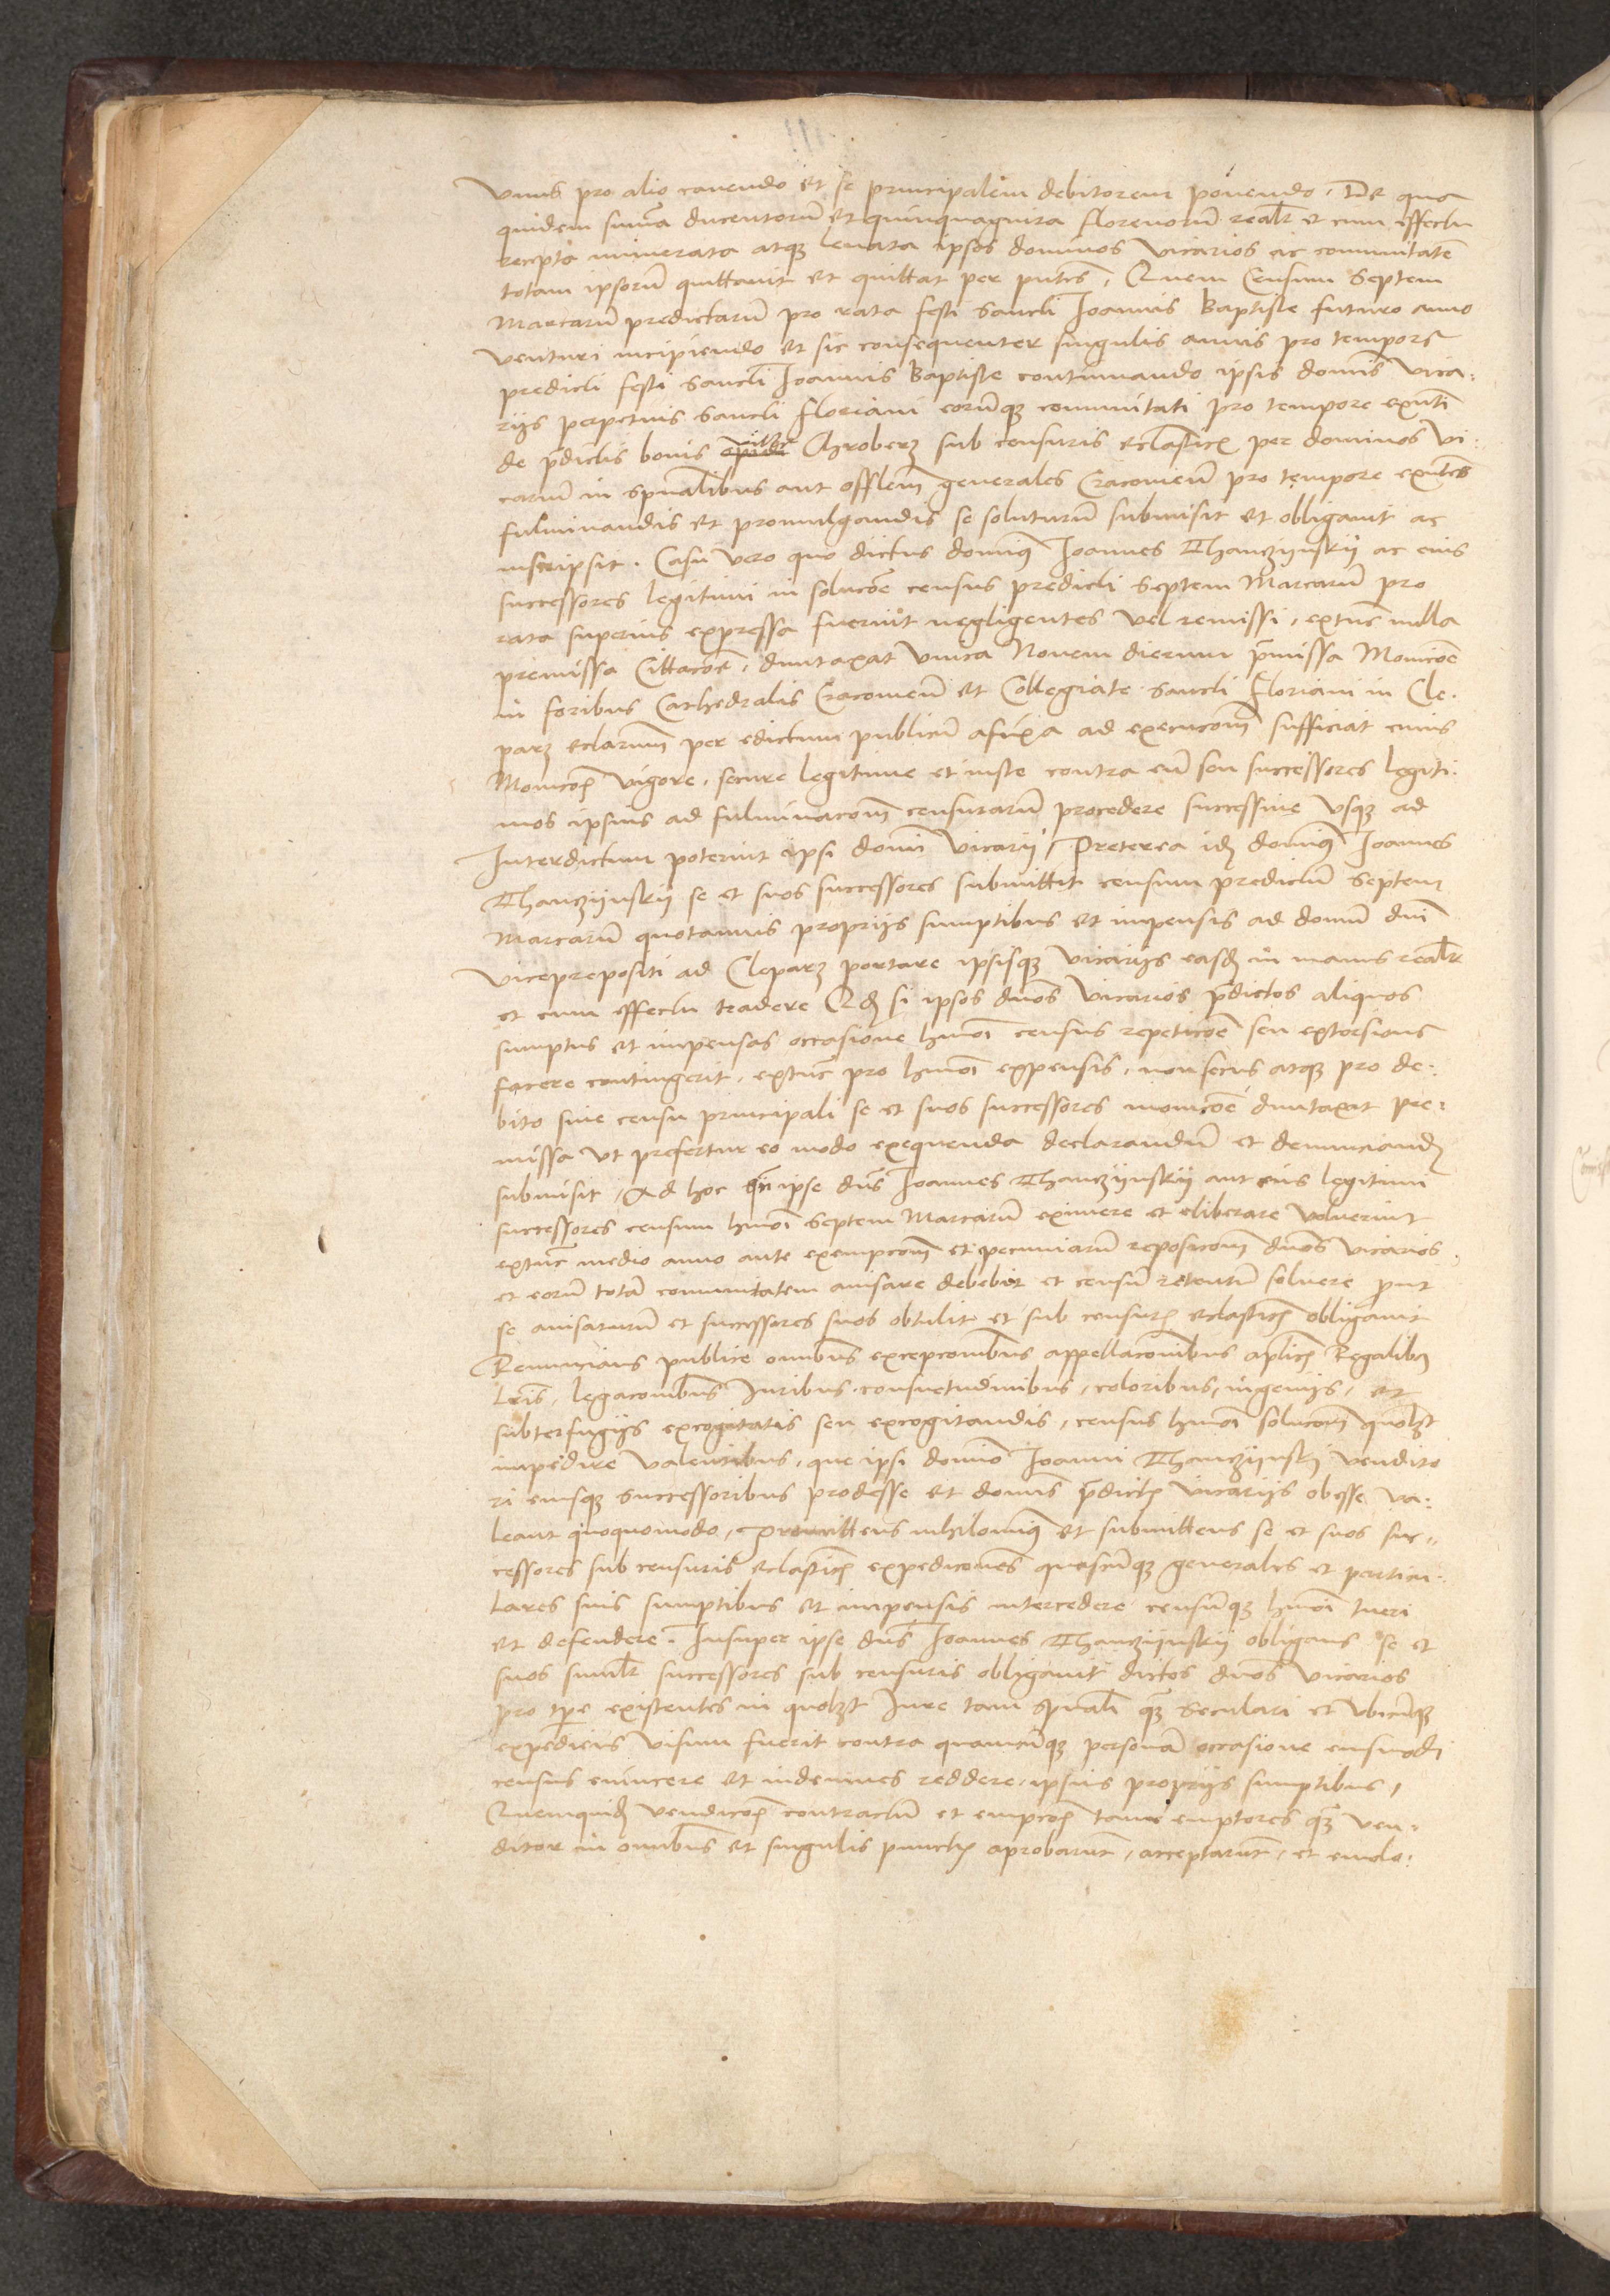 Vnus pro alio cauendo et se principalem debitorem ponendo. De qua
quidem sum̄a ducentorū et quinquaginta florenorū realr̄ et cum effectu
recepta numerata atqȝ leuata ipsos dominos vicarios ac com̄unitatē
totam ipsorū quittauit et quittat per pn̄tes, Quem Censum Septem
Marcarū predictarū pro rata festi Sancti Joannis Baptiste futuro anno
venturi incipiendo et sic consequenter singulis annis pro tempore
predicti festi Sancti Joannis Baptiste continuando ipsis domīs vica:
rijs perpetuis Sancti floriani eorumqȝ com̄unitati pro tempore exn̄ti
de p̄dictis bonis ville Chroberz sub censuris eclasticꝭ per dominos vi:
carium in spūalibus aut offlem generales Cracouien̄ pro tempore exn̄tes
fulminandis et promulgandis se soluturū submisit et obligauit ac
inscripsit. Casu vero quo dictus dominꝰ Joannes Thanczijnskij ac eius
successores legitimi in solucōe census predicti septem Marcarū pro
rata superius expressa fuerint negligentes vel remissi, extunc nulla
premissa Cittacōe, duntaxat vnica Nouem dierum p̄missa Monicōe
in foribus Cathedralis Cracouien̄ et Collegiate Sancti Floriani in Cle.
parz eclarum per edictum publicū afixa ad execucōm sufficiat cuius
Monicōꝭ vigore, secure legitime et iuste contra eū seu successores legiti:
mos ipsius ad fulminacōm censurarū procedere successiue vsqȝ ad
Interdictum poterint ipsi domī vicarij, Preterea idꝫ dominꝰ Joannes
Thanczijnskij se et suos successores submittit censum predictū septem
Marcarū quotannis proprijs sumptibus et impensis ad domū dn̄i
viceprepositi ad Cleparz portare ipsisqȝ vicarijs easdꝫ in manus realr̄
et cum effectu tradere Qdꝫ si ipsos dn̄os vicarios p̄dictos aliquos
sumptus et impensas occasione hmōi census repeticōe seu extorsione
facere contingerit, extunc pro hmōi expensis, non secus atqȝ pro de:
bito siue censu principali se et suos successores monicōe duntaxat pre:
missa vt prefertur eo modo exequenda declarandū et denunciandꝫ
submisit, Ad hoc qn̄ ipse dn̄s Joannes Thanczijnskij aut eius legitimi
successores censum hmōi Septem Marcarū eximere et eliberare voluerint
extunc medio anno ante exempcōm et pecuniarū reposicōm dn̄os vicarios
et eorū totā com̄unitatem auisare debebit et censū retentū soluere prout
se auisaturū et successores suos obtulit et sub censurꝭ eclasticꝭ obligauit
Renuncians publice omībus excepcōnibus appellacōnibus aplicꝭ Regalibꝫ
Lr̄is, legacōnibus Juribus consuetudinibus, coloribus, ingenijs, et
subterfugijs excogitatis seu excogitandis, census hmōi solucōm quolȝt
impedire valentibus, que ipsi domīo Joanni Thanczijnskij vendito
ri eiusqȝ successoribus prodesse et domīs p̄dictꝭ vicarijs obesse va:
leant quoquomodo, Promittens nihilominꝰ et submittens se et suos suc:
cessores sub censuris eclasticꝭ expedicōnes quascūqȝ generales et particu:
lares suis sumptibus et impensis intercedere censumqȝ hmōi tueri
et defendere. Insuper ipse dn̄s Joannes Thanczijnskij obligans se et
suos simulr̄ successores sub censuris obligauit dictos dn̄os vicarios
pro tp̄e existentes in quolȝt Jure tam spūali qȝ seculari et vbicūqȝ
expediens visum fuerit contra quamcūqȝ personā occasione eiusmōdi
census euincere et indemnes reddere, ipsius proprijs sumptibus,
Quemquidꝫ vendicōꝭ contractū et empcōꝭ tam emptores qȝ ven:
ditor in omībus et singulis punctꝭ aprobarunt, acceptarunt, et emolo: